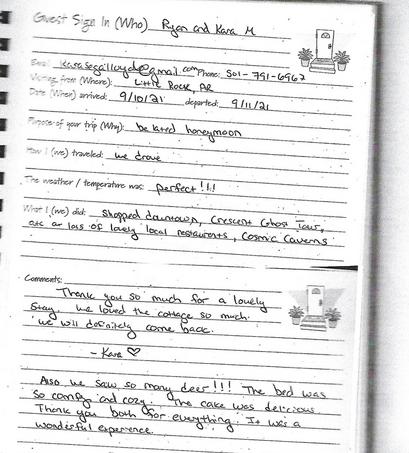 Guest Sign In (Who) Ryan and Kara M
Email karasegalloyd@gmail.com Phone: 501-791-6967
Visiting from (Where): Little Rock, AR
Date (When) arrived: 9/10/21 departed: 9/11/21
Purpose of your trip (Why): belated honeymoon
How I (we) traveled: we drove
The weather / temperature was: perfect!!!
What I (we) did: shopped downtown, Crescent Ghost Tour,
ate at lots of lovely local restaurants, Cosmic Caverns
Comments:
Thank you so much for a lovely
stay. We loved the cottage so much.
We will definitely come back.
- Kara ♡
Also we saw so many deer!!! The bed was
so comfy and cozy. The cake was delicious.
Thank you both for everything. It was a
wonderful experience.